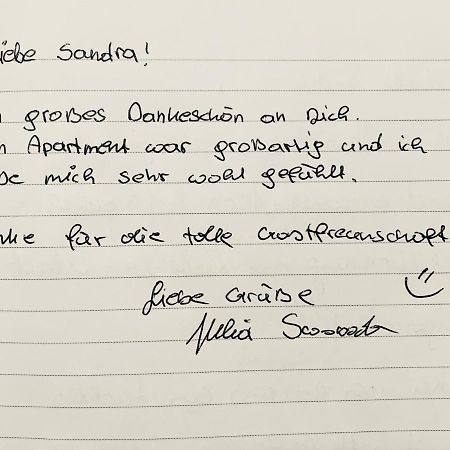 iebe Sandra!
großes Dankeschön an Dich.
Apartment war großartig und ich
be mich sehr wohl gefühlt.
nke für die tolle Gastfreunschaft
Liebe Grüße
Julia